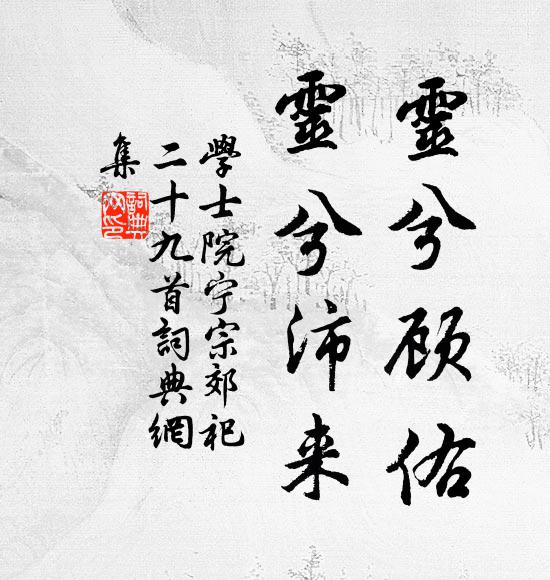 靈兮顾佑
靈兮沛来
學士院宁宗郊祀
二十九首詞典網
集
詞典網印